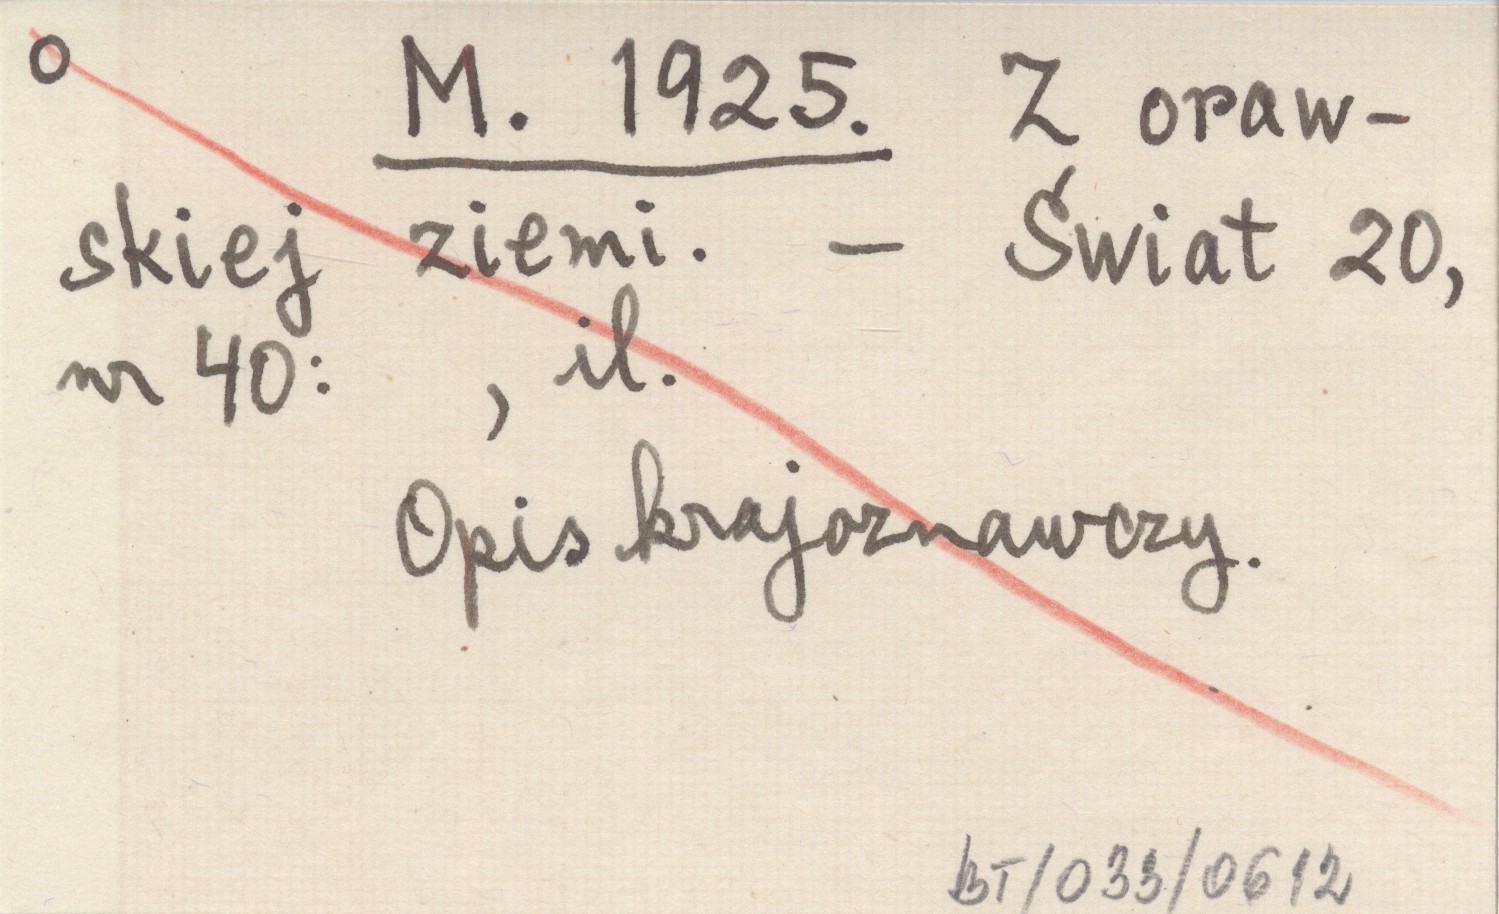 o M. 1925. Z oraw-
skiej ziemi. – Świat 20,
nr 40: , il.
Opis krajoznawczy.
BT/033/0612